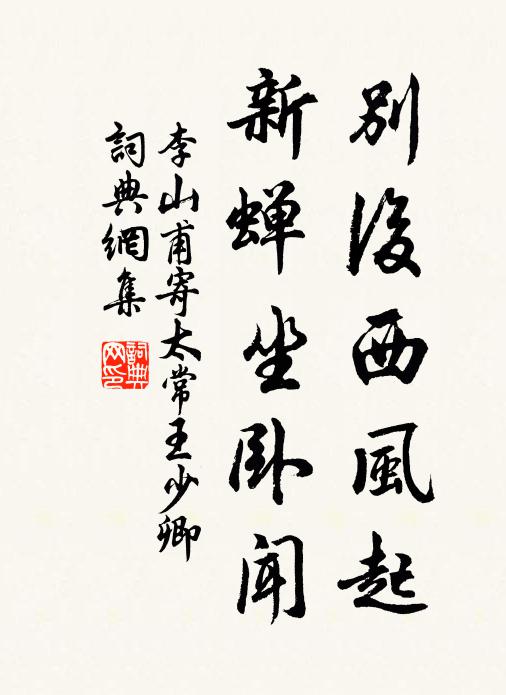 別後西風起
新蝉坐卧聞
李山甫寄太常王少卿
詞典網集
詞典
网印